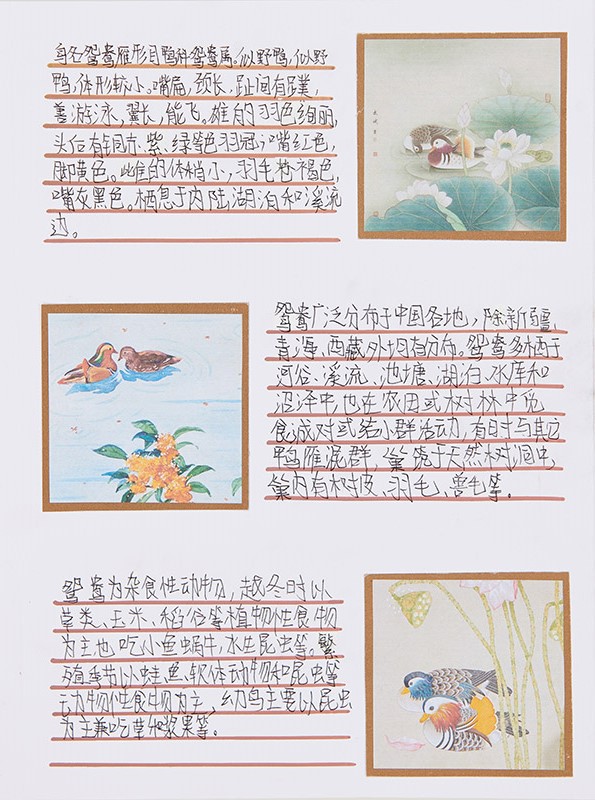 鸟名鸳鸯雁形目鸭科鸳鸯属。似野鸭,似野
鸭,体形较小。嘴扁,颈长,趾间有蹼,
善游泳,翼长,能飞。雄的羽色绚丽,
头后有铜赤、紫、绿等色羽冠;嘴红色,
脚黄色。雌的体稍小,羽毛苍褐色,
嘴灰黑色。栖息于内陆湖泊和溪流
边。
鸳鸯广泛分布于中国各地,除新疆、
青海、西藏外均有分布。鸳鸯多栖于
河谷、溪流、池塘、湖泊、水库和
沼泽中,也在农田或树林中觅
食,成对或结小群活动,有时与其它
鸭雁混群,巢营于天然树洞中,
巢内有树皮、羽毛、兽毛等。
鸳鸯为杂食性动物,越冬时以
草类、玉米、稻谷等植物性食物
为主也吃小鱼蜗牛,水生昆虫等。繁
殖季节以蛙、鱼、软体动物和昆虫等
动物性食物为主,幼鸟主要以昆虫
为主兼吃草和浆果等。